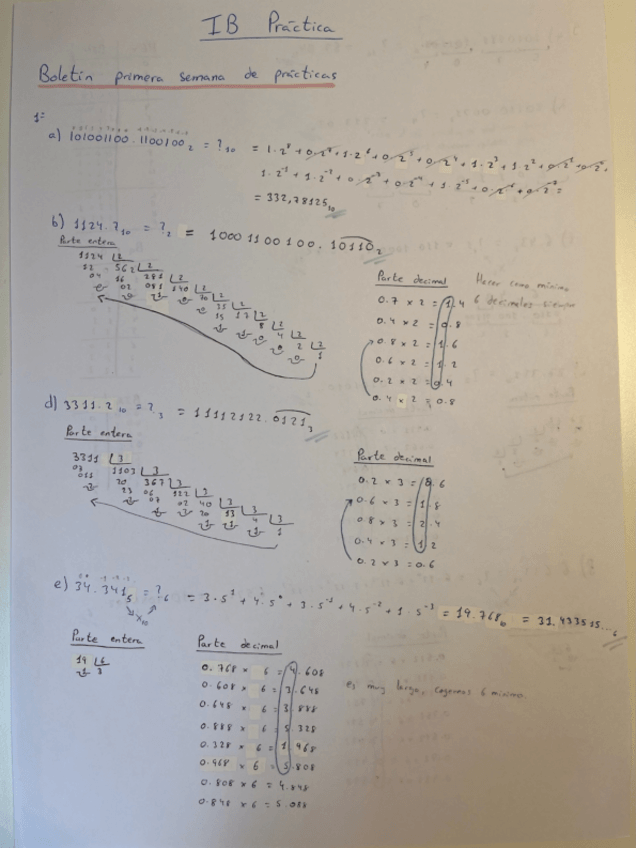 IB Práctica
Boletín primera semana de prácticas
1=
a) 101001100.1100100₂ = ?₁₀ = 1·2⁸ + 0·2⁷ + 1·2⁶ + 0·2⁵ + 0·2⁴ + 1·2³ + 1·2² + 0·2¹ + 0·2⁰ +
1·2⁻¹ + 1·2⁻² + 0·2⁻³ + 0·2⁻⁴ + 1·2⁻⁵ + 0·2⁻⁶ + 0·2⁻⁷ =
= 332,78125₁₀
b) 1124.7₁₀ = ?₂ = 10001100100.10110₂
Parte entera
1124 |2
12 562 |2
04 16 281 |2
0 02 081 140 |2
Parte decimal
0.7 × 2 = 1.4
0.4 × 2 = 0.8
0.8 × 2 = 1.6
0.6 × 2 = 1.2
0.2 × 2 = 0.4
0.4 × 2 = 0.8
Hacer como mínimo
6 decimales siempre
d) 3311.2₁₀ = ?₃ = 11112122.0121₃
Parte entera
3311 |3
1103 |3
367 |3
122 |3
40 |3
13 |3
4 |3
1
Parte decimal
0.2 × 3 = 0.6
0.6 × 3 = 1.8
0.8 × 3 = 2.4
0.4 × 3 = 1.2
0.2 × 3 = 0.6
e) 34.341₅ = ?₆ = 3·5¹ + 4·5⁰ + 3·5⁻¹ + 4·5⁻² + 1·5⁻³ = 19.768₁₀ = 31.433515...₆
X₁₀
Parte entera
19 |6
1 3
Parte decimal
0.768 × 6 = 4.608
0.608 × 6 = 3.648
0.648 × 6 = 3.888
0.888 × 6 = 5.328
0.328 × 6 = 1.968
0.968 × 6 = 5.808
0.808 × 6 = 4.848
0.848 × 6 = 5.088
es muy largo, cogemos 6 mínimo.